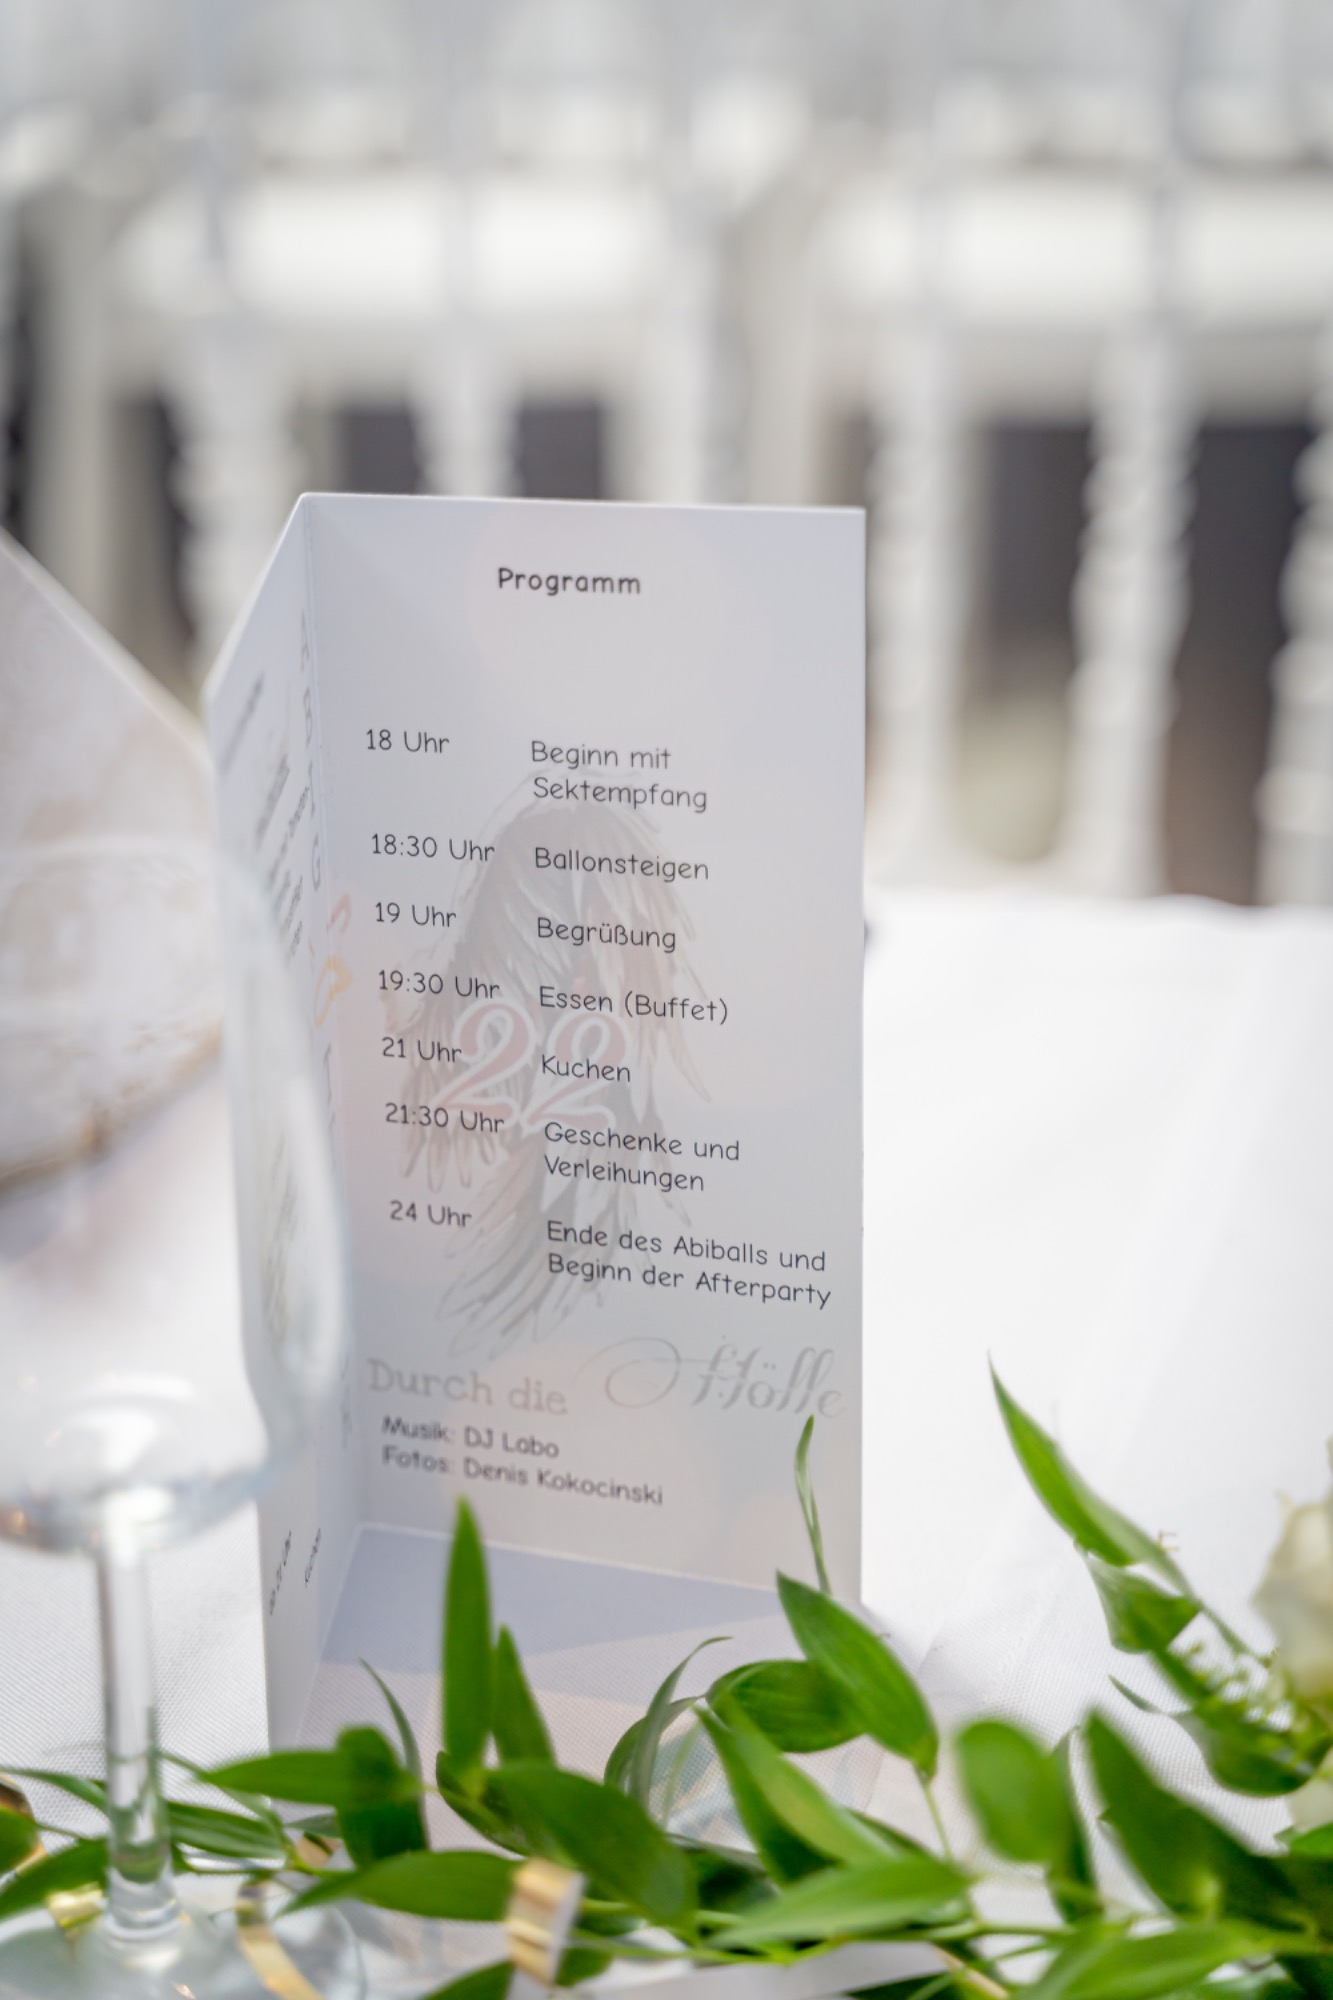 Programm
18 Uhr Beginn mit
Sektempfang
18:30 Uhr Ballonsteigen
19 Uhr Begrüßung
19:30 Uhr Essen (Buffet)
21 Uhr Kuchen
22
21:30 Uhr Geschenke und
Verleihungen
24 Uhr Ende des Abiballs und
Beginn der Afterparty
Durch die Hölle
Musik: DJ Labo
Fotos: Denis Kokocinski